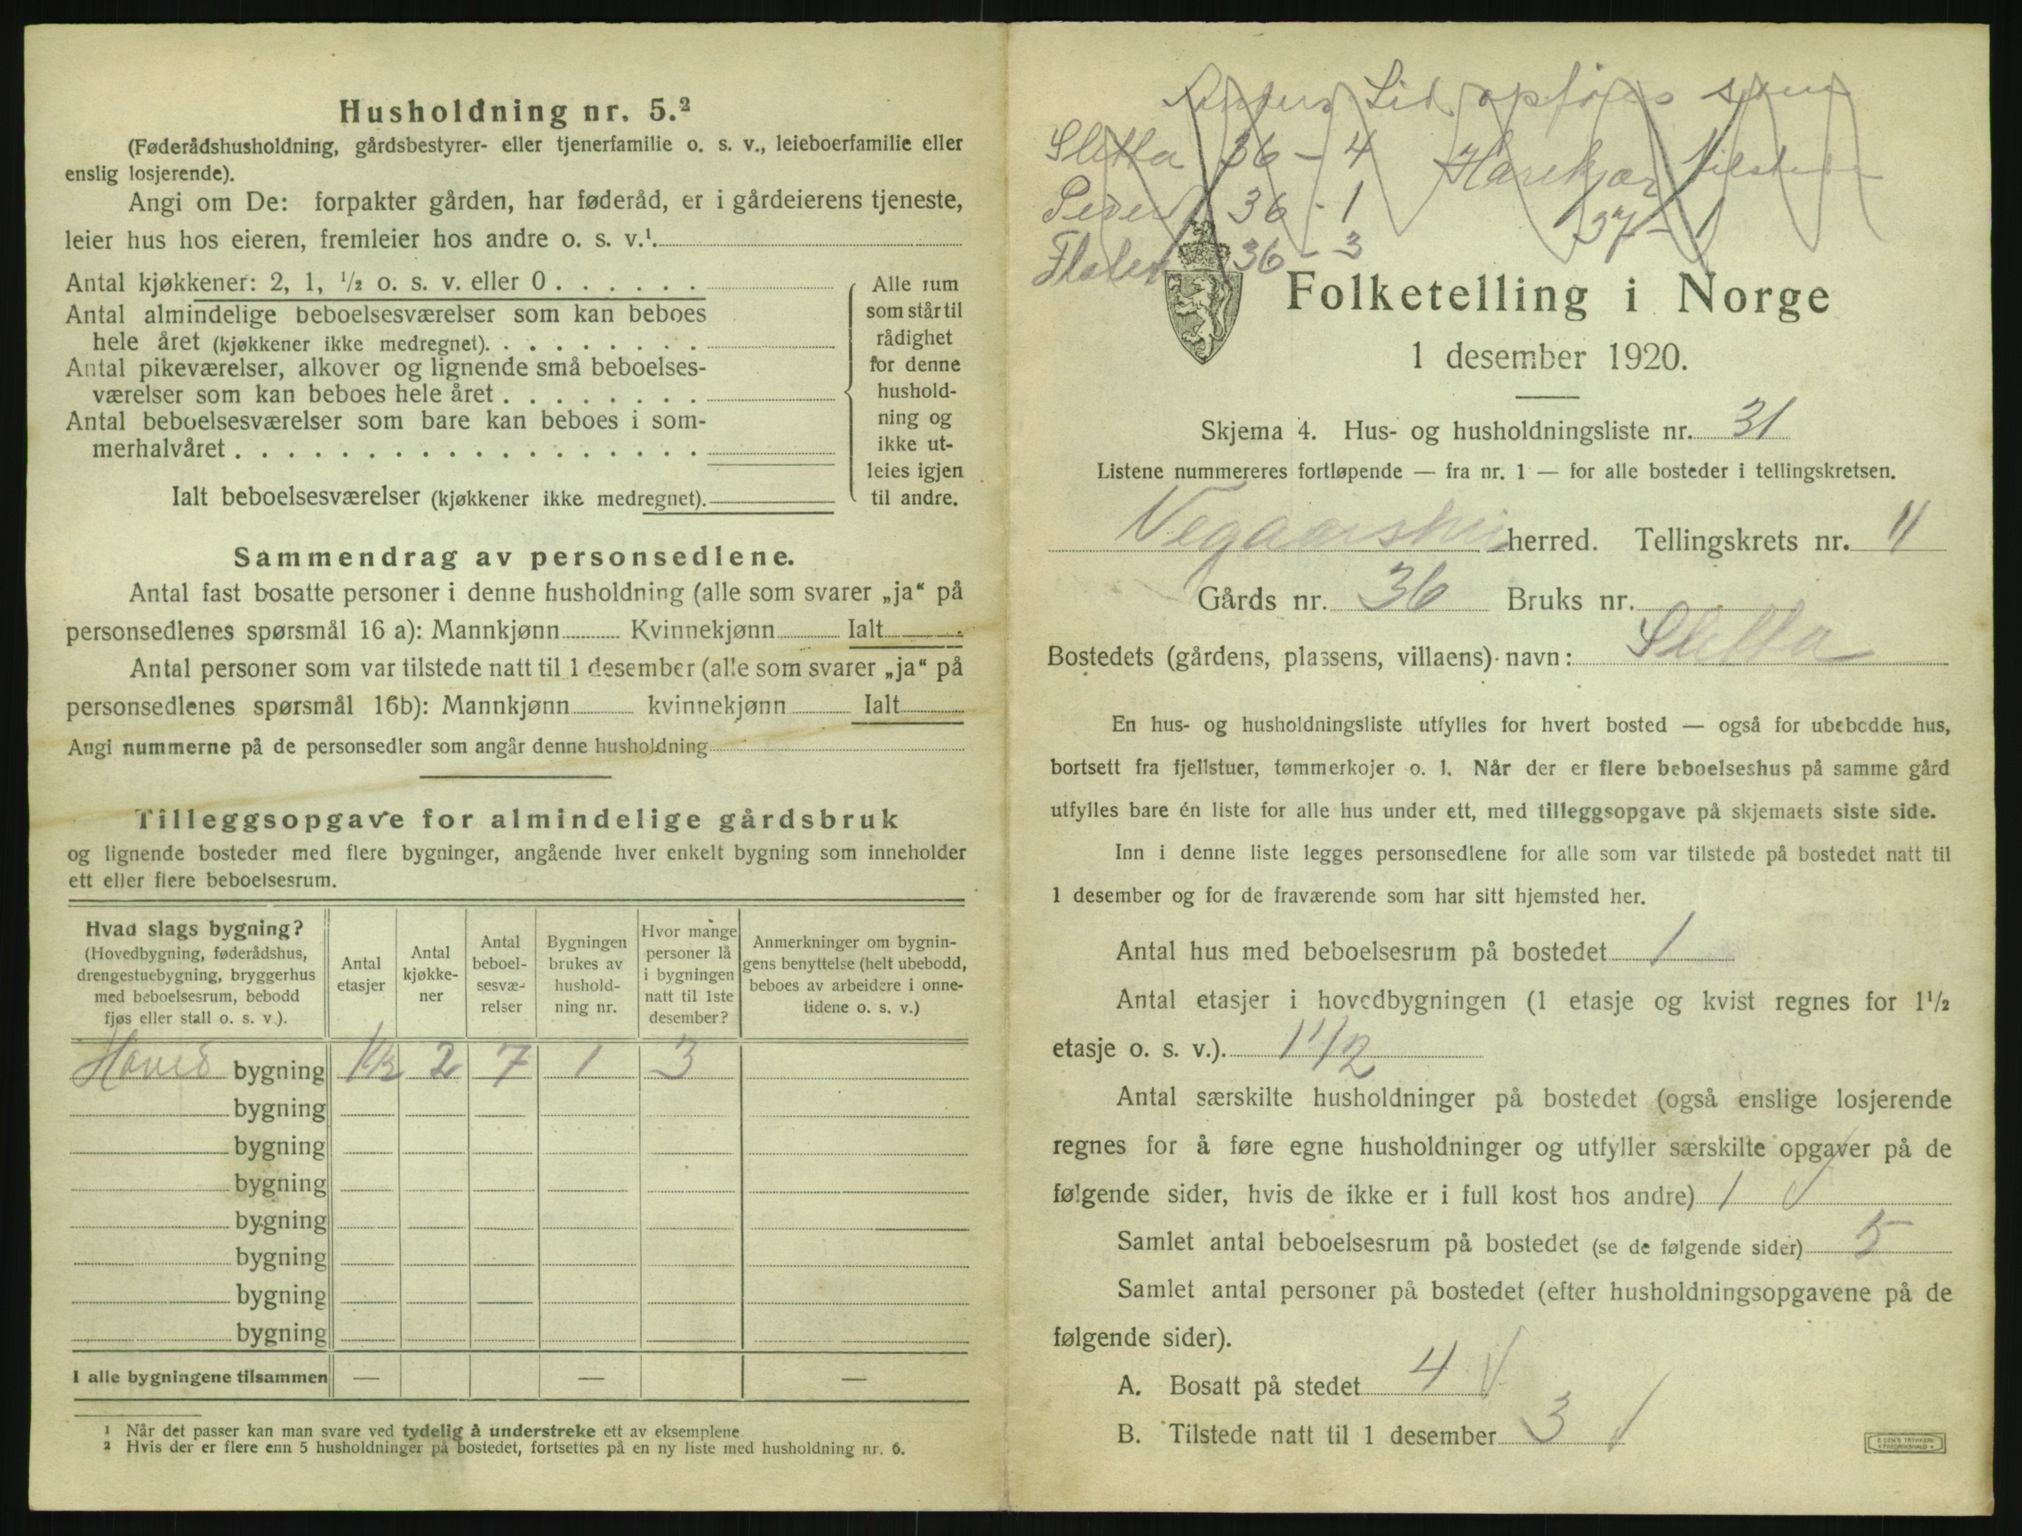 Husholdning nr. 5.²
(Føderådshusholdning, gårdsbestyrer- eller tjenerfamilie o. s. v., leieboerfamilie eller
enslig losjerende).
Angi om De: forpakter gården, har føderåd, er i gårdeierens tjeneste,
leier hus hos eieren, fremleier hos andre o. s. v.¹.
Antal kjøkkener: 2, 1, ½ o. s. v. eller 0 . . . . . .
Antal almindelige beboelsesværelser som kan beboes
hele året (kjøkkener ikke medregnet). . . . . . . . .
Antal pikeværelser, alkover og lignende små beboelses-
værelser som kan beboes hele året . . . . . . . .
Antal beboelsesværelser som bare kan beboes i som-
merhalvåret . . . . . . . . . . . . . . . . . .
Ialt beboelsesværelser (kjøkkener ikke medregnet).
Alle rum
som står til
rådighet
for denne
hushold-
ning og
ikke ut-
leies igjen
til andre.
Sammendrag av personsedlene.
Antal fast bosatte personer i denne husholdning (alle som svarer „ja“ på
personsedlenes spørsmål 16 a): Mannkjønn Kvinnekjønn Ialt
Antal personer som var tilstede natt til 1 desember (alle som svarer „ja“ på
personsedlenes spørsmål 16b): Mannkjønn kvinnekjønn Ialt
Angi nummerne på de personsedler som angår denne husholdning
Tilleggsopgave for almindelige gårdsbruk
og lignende bosteder med flere bygninger, angående hver enkelt bygning som inneholder
ett eller flere beboelsesrum.
Hvad slags bygning?
(Hovedbygning, føderådshus,
drengestuebygning, bryggerhus
med beboelsesrum, bebodd
fjøs eller stall o. s. v.).
Antal
etasjer
Antal
kjøkke-
ner
Antal
beboel-
sesvæ-
relser
Bygningen
brukes av
hushold-
ning nr.
Hvor mange
personer lå
i bygningen
natt til 1ste
desember?
Anmerkninger om bygnin-
gens benyttelse (helt ubebodd,
beboes av arbeidere i onne-
tidene o. s. v.)
Hoved bygning 1½ 2 7 1 3
bygning
bygning
bygning
bygning
bygning
bygning
bygning
I alle bygningene tilsammen — — —
¹ Når det passer kan man svare ved tydelig å understreke ett av eksemplene
² Hvis der er flere enn 5 husholdninger på bostedet, fortsettes på en ny liste med husholdning nr. 6.
Anders Lid opføres som
Sletta 36 - 4
Peder 36 - 1 37 - 1
36 - 3
Folketelling i Norge
1 desember 1920.
Skjema 4. Hus- og husholdningsliste nr. 31
Listene nummereres fortløpende — fra nr. 1 — for alle bosteder i tellingskretsen.
Vegaarshei herred. Tellingskrets nr. 4
Gårds nr. 36 Bruks nr.
Bostedets (gårdens, plassens, villaens) navn: Sletta
En hus- og husholdningsliste utfylles for hvert bosted — også for ubebodde hus,
bortsett fra fjellstuer, tømmerkojer o. l. Når der er flere beboelseshus på samme gård
utfylles bare én liste for alle hus under ett, med tilleggsopgave på skjemaets siste side.
Inn i denne liste legges personsedlene for alle som var tilstede på bostedet natt til
1 desember og for de fraværende som har sitt hjemsted her.
Antal hus med beboelsesrum på bostedet 1
Antal etasjer i hovedbygningen (1 etasje og kvist regnes for 1½
etasje o. s. v.). 1 1/2
Antal særskilte husholdninger på bostedet (også enslige losjerende
regnes for å føre egne husholdninger og utfyller særskilte opgaver på de
følgende sider, hvis de ikke er i full kost hos andre) 1 √
Samlet antal beboelsesrum på bostedet (se de følgende sider) 5
Samlet antal personer på bostedet (efter husholdningsopgavene på de
følgende sider).
A. Bosatt på stedet 4 √
B. Tilstede natt til 1 desember 3 √